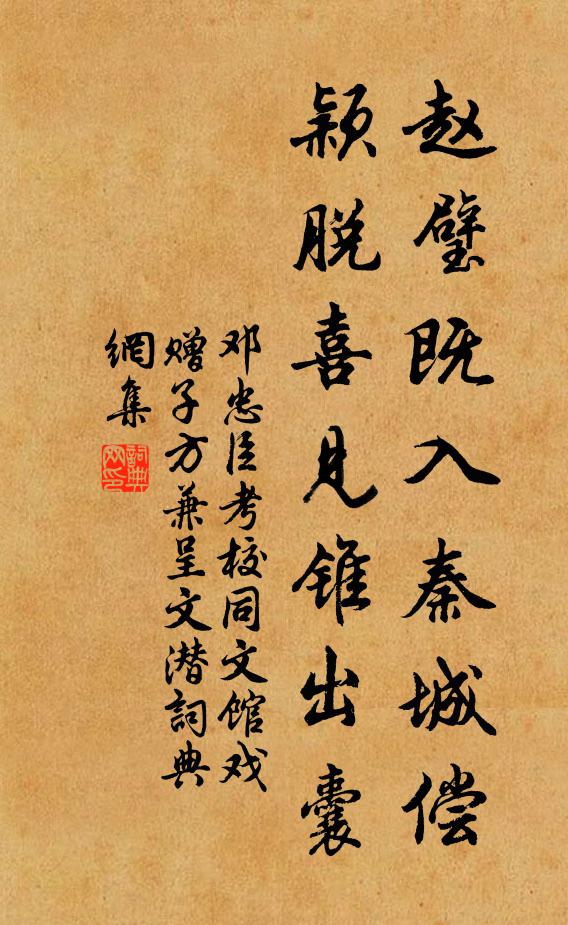 赵璧既入秦城偿
颖脱喜见锥出囊
邓忠臣考校同文馆戏
赠子方兼呈文潜詞典
網集
詞典网印